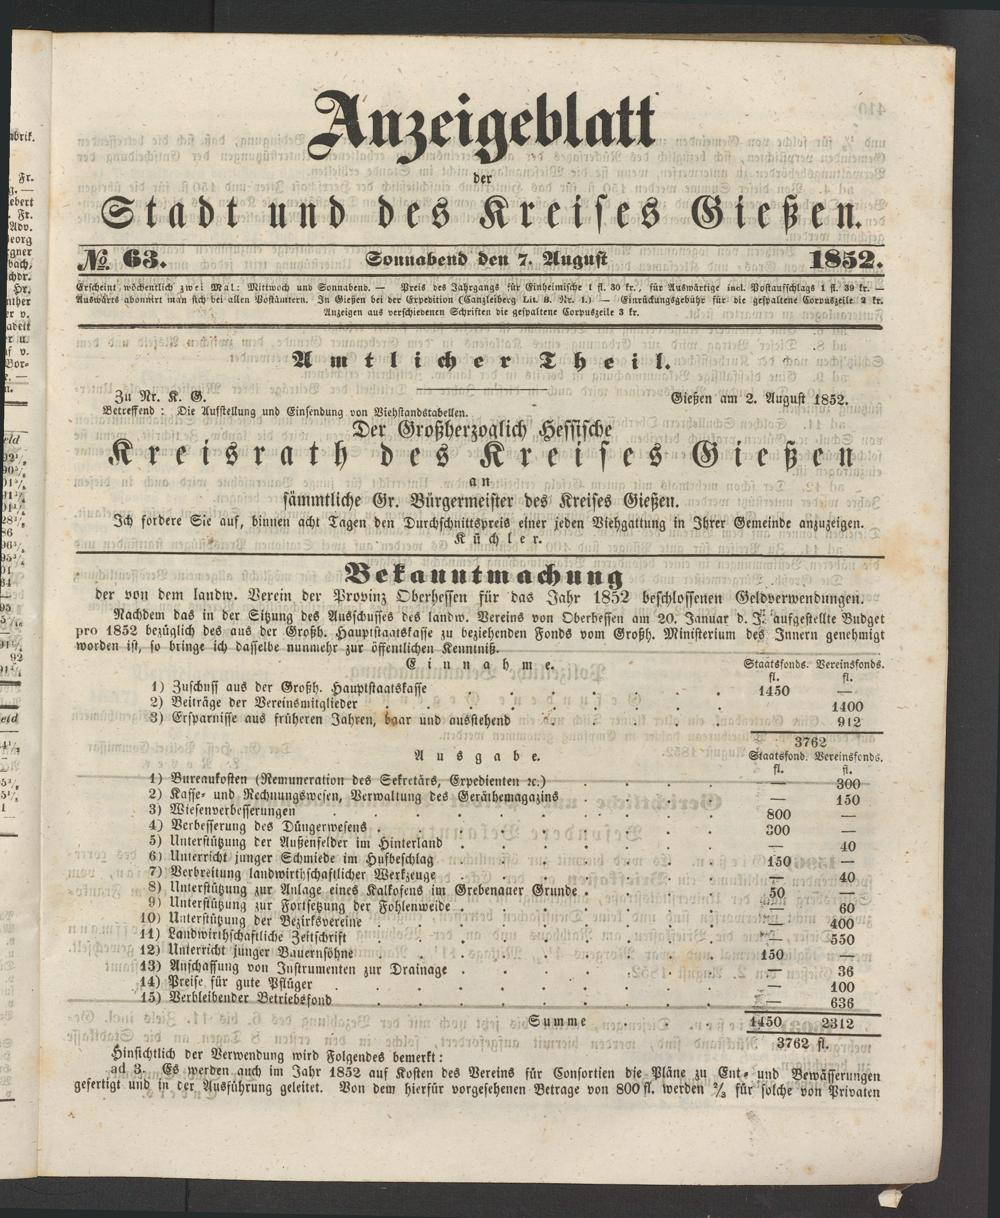 Anzeigeblatt
der
Stadt und des Kreises Gießen.
№ 63. Sonnabend den 7. August 1852.
Erscheint wöchentlich zwei Mal: Mittwoch und Sonnabend. — Preis des Jahrgangs für Einheimische 1 fl. 30 kr., für Auswärtige incl. Postaufschlags 1 fl. 39 kr. —
Auswärts abonnirt man sich bei allen Postämtern. In Gießen bei der Expedition (Canzleiberg Lit. B. Nr. 1.) — Einrückungsgebühr für die gespaltene Corpuszeile 2 kr.
Anzeigen aus verschiedenen Schriften die gespaltene Corpuszeile 3 kr.
Amtlicher Theil.
Zu Nr. K. G. Gießen am 2. August 1852.
Betreffend: Die Aufstellung und Einsendung von Viehstandstabellen.
Der Großherzoglich Hessische
Kreisrath des Kreises Gießen
an
sämmtliche Gr. Bürgermeister des Kreises Gießen.
Ich fordere Sie auf, binnen acht Tagen den Durchschnittspreis einer jeden Viehgattung in Ihrer Gemeinde anzuzeigen.
Küchler.
Bekanntmachung
der von dem landw. Verein der Provinz Oberhessen für das Jahr 1852 beschlossenen Geldverwendungen.
Nachdem das in der Sitzung des Ausschusses des landw. Vereins von Oberhessen am 20. Januar d. J. aufgestellte Budget
pro 1852 bezüglich des aus der Großh. Hauptstaatskasse zu beziehenden Fonds vom Großh. Ministerium des Innern genehmigt
worden ist, so bringe ich dasselbe nunmehr zur öffentlichen Kenntniß.
Einnahme. Staatsfonds. Vereinsfonds.
fl. fl.
1) Zuschuss aus der Großh. Hauptstaatskasse . . . . 1450 —
2) Beiträge der Vereinsmitglieder . . . . . — 1400
3) Ersparnisse aus früheren Jahren, baar und ausstehend . . . . — 912
3762
Ausgabe. Staatsfond. Vereinsfonds.
fl. fl.
1) Bureaukosten (Remuneration des Sekretärs, Expedienten ꝛc.) . . . . — 300
2) Kasse- und Rechnungswesen, Verwaltung des Geräthemagazins . . . . — 150
3) Wiesenverbesserungen . . . . . . 800 —
4) Verbesserung des Düngerwesens . . . . . 300 —
5) Unterstützung der Außenfelder im Hinterland . . . . — 40
6) Unterricht junger Schmiede im Hufbeschlag . . . . 150 —
7) Verbreitung landwirthschaftlicher Werkzeuge . . . . — 40
8) Unterstützung zur Anlage eines Kalkofens im Grebenauer Grunde . . . . 50 —
9) Unterstützung zur Fortsetzung der Fohlenweide . . . . — 60
10) Unterstützung der Bezirksvereine . . . . — 400
11) Landwirthschaftliche Zeitschrift . . . . — 550
12) Unterricht junger Bauernsöhne . . . . 150 —
13) Anschaffung von Instrumenten zur Drainage . . . . — 36
14) Preise für gute Pflüger . . . . — 100
15) Verbleibender Betriebsfond . . . . — 636
Summe . . 1450 2312
3762 fl.
Hinsichtlich der Verwendung wird Folgendes bemerkt:
ad 3. Es werden auch im Jahr 1852 auf Kosten des Vereins für Consortien die Pläne zu Ent- und Bewässerungen
gefertigt und in der Ausführung geleitet. Von dem hierfür vorgesehenen Betrage von 800 fl. werden ⅔ für solche von Privaten